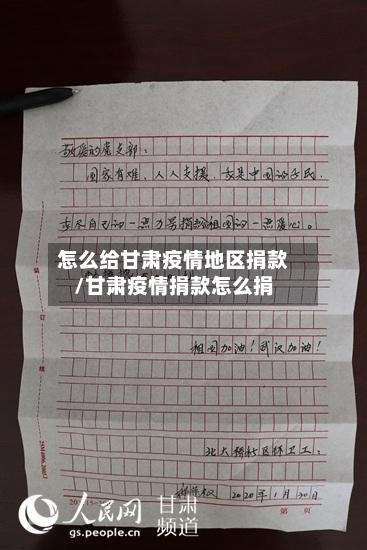 敬爱的党支部：
国家有难，人人支援，我是中国的子民，
去尽自己的一点力量捐给祖国的一点爱心。
怎么给甘肃疫情地区捐款
/甘肃疫情捐款怎么捐
祖国加油！武汉加油！
北大桥社区环卫工：
2020年1月30日
装 订 线
第 页
人民网 甘肃
gs.people.cn 频道